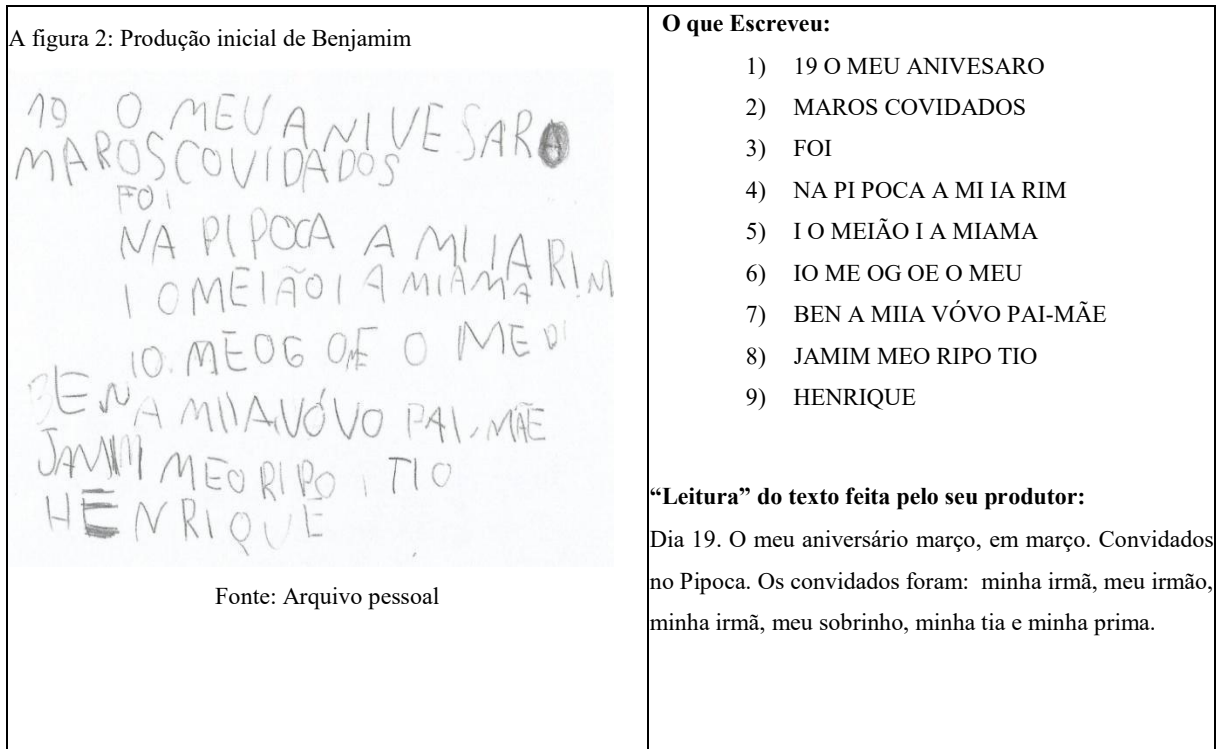 A figura 2: Produção inicial de Benjamim
19 O MEU ANIVESARO
MAROS COVIDADOS
FOI
NA PI POCA A MI IA RIM
I O MEIÃO I A MIAMA
IO. MEOG OE O MEU
BEN A MIIA VÓVO PAI-MÃE
JAMIM MEO RIPO TIO
HENRIQUE
Fonte: Arquivo pessoal
O que Escreveu:
1) 19 O MEU ANIVESARO
2) MAROS COVIDADOS
3) FOI
4) NA PI POCA A MI IA RIM
5) I O MEIÃO I A MIAMA
6) IO ME OG OE O MEU
7) BEN A MIIA VÓVO PAI-MÃE
8) JAMIM MEO RIPO TIO
9) HENRIQUE
“Leitura” do texto feita pelo seu produtor:
Dia 19. O meu aniversário março, em março. Convidados
no Pipoca. Os convidados foram: minha irmã, meu irmão,
minha irmã, meu sobrinho, minha tia e minha prima.